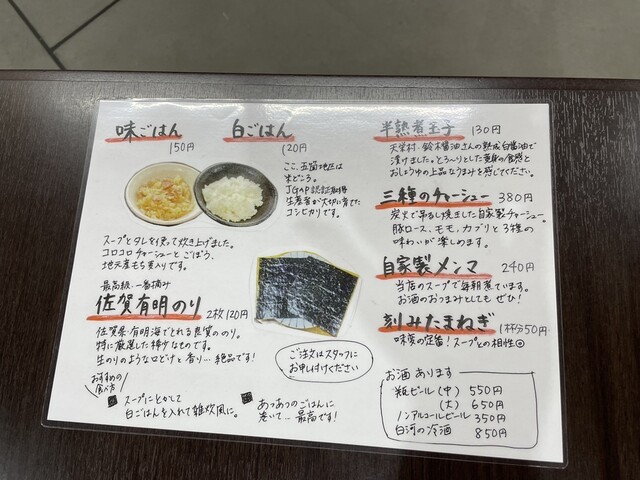 味ごはん
150円
白ごはん
120円
ここ、五箇地区は
米どころ。
JGAP認証取得
生産者が大切に育てた
コシヒカリです。
スープとタレを使って炊き上げました。
コロコロチャーシューとごぼう、
地元産もち麦入りです。
最高級一番摘み
佐賀有明のり 2枚120円
佐賀県・有明海でとれる良質ののり。
特に厳選した稀少なものです。
生のりのような口どけと香り…絶品です!
おすすめの
食べ方
スープにとかして
白ごはんを入れて雑炊風に。
あつあつのごはんに
巻いて…最高です!
ご注文はスタッフに
お申し付けください
半熟煮玉子 130円
天栄村・鈴木醤油さんの熟成白醤油で
漬けました。とろ〜りとした黄身の食感と
おしょうゆの上品なうまみを感じてください。
三種のチャーシュー 380円
炭火で吊るし焼きした自家製チャーシュー。
豚ロース、モモ、カブリと3種の
味わいが楽しめます。
自家製メンマ 240円
当店のスープで毎朝煮ています。
お酒のおつまみとしても ぜひ!
刻みたまねぎ 1杯分50円
味変の定番!スープとの相性◎
お酒あります
瓶ビール(中) 550円
(大) 650円
ノンアルコールビール 350円
白河の冷酒 850円